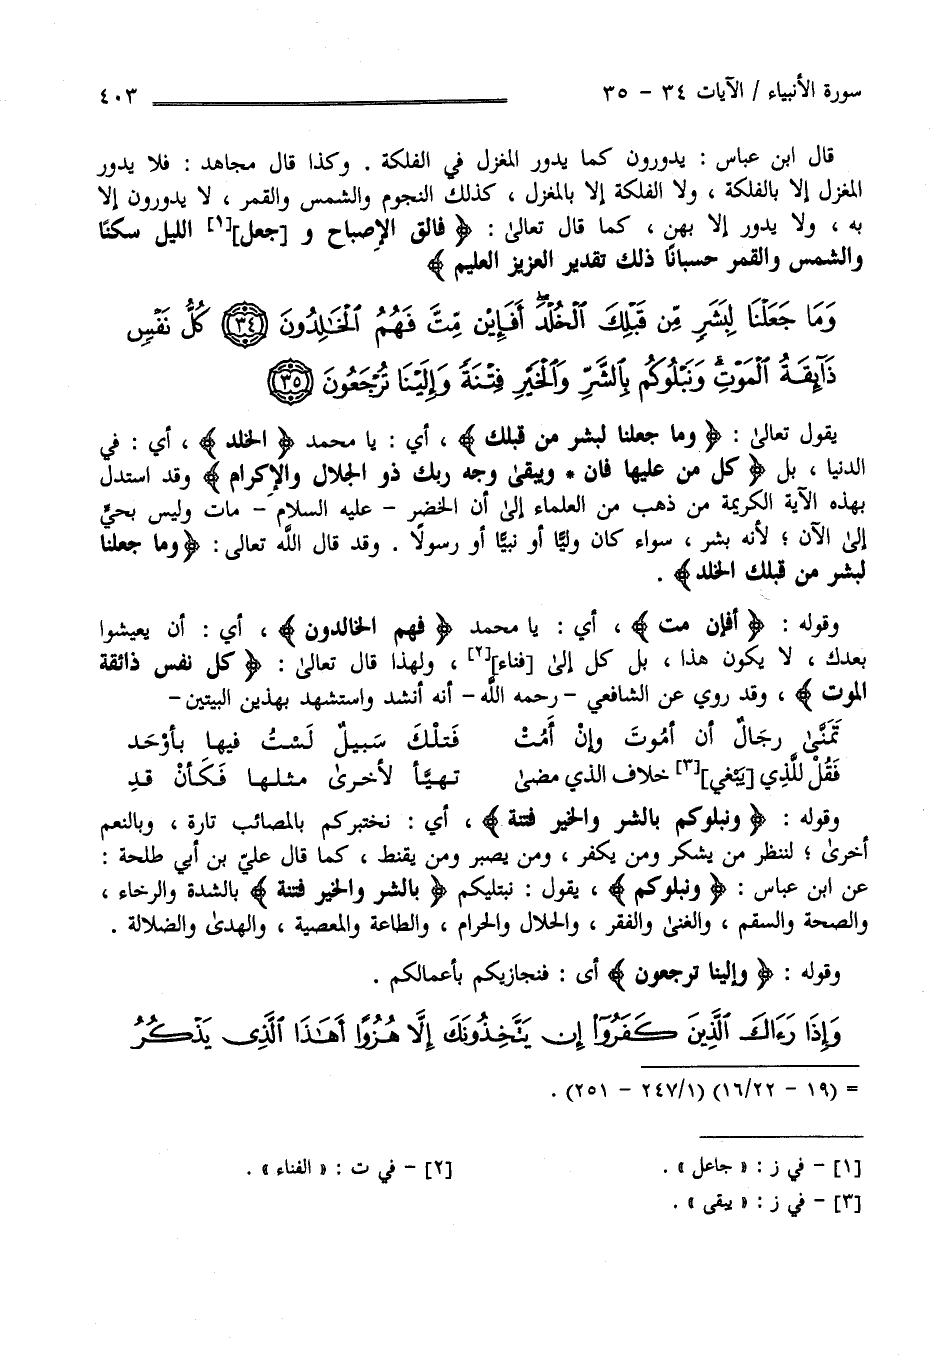 سورة الأنبياء / الآيات ٣٤ - ٣٥ ٤٠٣
قال ابن عباس : يدورون كما يدور المغزل في الفلكة . وكذا قال مجاهد : فلا يدور
المغزل إلا بالفلكة ، ولا الفلكة إلا بالمغزل ، كذلك النجوم والشمس والقمر ، لا يدورون إلا
به ، ولا يدور إلا بهن ، كما قال تعالىٰ : ﴿ فالق الإصباح و [جعل][١] الليل سكنًا
والشمس والقمر حسبانًا ذلك تقدير العزيز العليم ﴾
وَمَا جَعَلْنَا لِبَشَرٍ مِّن قَبْلِكَ ٱلْخُلْدَۖ أَفَإِيْن مِّتَّ فَهُمُ ٱلْخَٰلِدُونَ ٣٤ كُلُّ نَفْسٍ
ذَآئِقَةُ ٱلْمَوْتِۗ وَنَبْلُوكُم بِٱلشَّرِّ وَٱلْخَيْرِ فِتْنَةً وَإِلَيْنَا تُرْجَعُونَ ٣٥
يقول تعالىٰ : ﴿ وما جعلنا لبشر من قبلك ﴾ ، أي : يا محمد ﴿ الخلد ﴾ ، أي : في
الدنيا ، بل ﴿ كل من عليها فان * ويبقىٰ وجه ربك ذو الجلال والإكرام ﴾ وقد استدل
بهذه الآية الكريمة من ذهب من العلماء إلىٰ أن الخضر - عليه السلام - مات وليس بحيٍّ
إلىٰ الآن ؛ لأنه بشر ، سواء كان وليًّا أو نبيًّا أو رسولًا . وقد قال اللَّه تعالى : ﴿وما جعلنا
لبشر من قبلك الخلد﴾ .
وقوله : ﴿ أفإن مت ﴾ ، أي : يا محمد ﴿ فهم الخالدون ﴾ ، أي : أن يعيشوا
بعدك ، لا يكون هذا ، بل كل إلىٰ [فناء][٢] ، ولهذا قال تعالىٰ : ﴿ كل نفس ذائقة
الموت ﴾ ، وقد روي عن الشافعي - رحمه اللَّه- أنه أنشد واستشهد بهذين البيتين-
تَمَنَّىٰ رجَالٌ أن أمُوتَ وإنْ أَمُتْ فَتلْكَ سَبيلٌ لَسْتُ فيها بأوْحَد
فَقُلْ للَّذِي [يَبْغي][٣] خلاف الذي مضىٰ تهيَّأ لأخرىٰ مثلها فَكَأنْ قد
وقوله : ﴿ ونبلوكم بالشر والخير فتنة ﴾ ، أي : نختبركم بالمصائب تارة ، وبالنعم
أخرىٰ ؛ لننظر من يشكر ومن يكفر ، ومن يصبر ومن يقنط ، كما قال عليّ بن أبي طلحة :
عن ابن عباس : ﴿ ونبلوكم ﴾ ، يقول : نبتليكم ﴿ بالشر والخير فتنة ﴾ بالشدة والرخاء ،
والصحة والسقم ، والغنىٰ والفقر ، والحلال والحرام ، والطاعة والمعصية ، والهدىٰ والضلالة .
وقوله : ﴿ وإلينا ترجعون ﴾ أى : فنجازيكم بأعمالكم .
وَإِذَا رَءَاكَ ٱلَّذِينَ كَفَرُوٓا۟ إِن يَتَّخِذُونَكَ إِلَّا هُزُوًا أَهَٰذَا ٱلَّذِى يَذْكُرُ
= (١٩ - ١٦/٢٢) (٢٤٧/١ - ٢٥١) .
[١] - في ز : « جاعل » . [٢] - في ت : « الفناء » .
[٣] - في ز : « يبقى » .